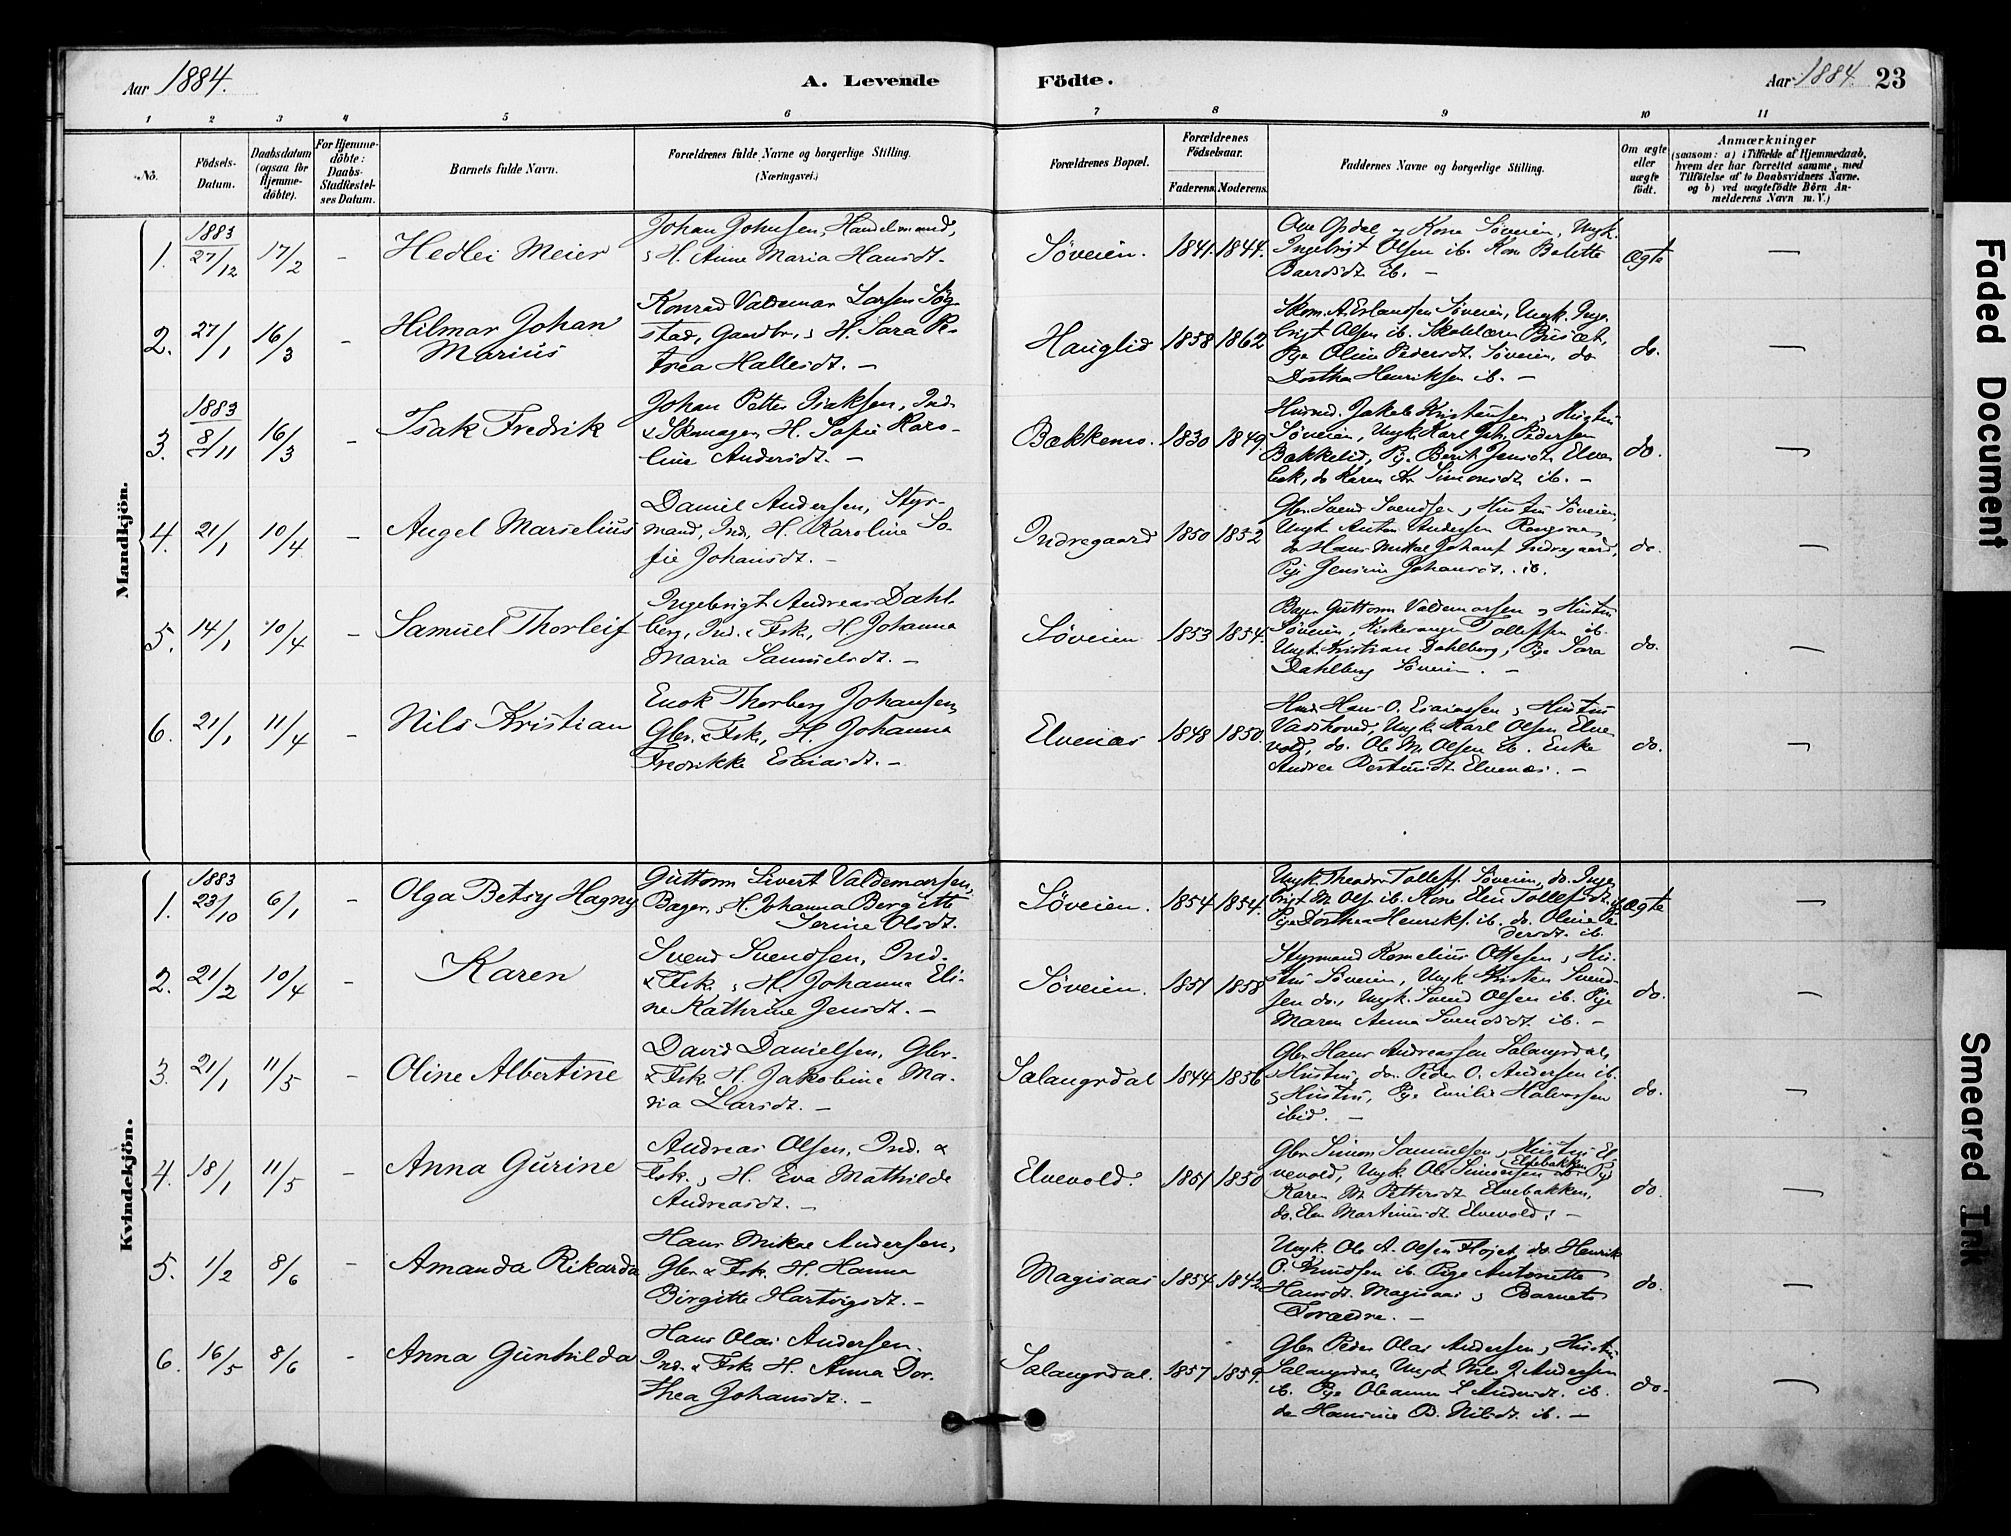 Aar 1884.
A. Levende
Födte.
Aar 1884. 23
1 2 3 4 5 6 7 8 9 10 11
No.
Födsels-Datum.
Daabsdatum (ogsaa for Hjemme-döbte).
For Hjemme-döbte: Daabs-Stadfæstel-ses Datum.
Barnets fulde Navn.
Forældrenes fulde Navne og borgerlige Stilling.
(Næringsvei.)
Forældrenes Bopæl.
Forældrenes Födselsaar.
Faderens. Moderens.
Faddernes Navne og borgerlige Stilling.
Om ægte eller uægte født.
Anmærkninger
(saasom: a) i Tilfælde af Hjemmedaab,
hvem der har forrettet samme, med
Tilföielse af to Daabsvidners Navne.
og b) ved uægtefödte Börn An-
melderens Navn m. V.)
Mandkjön.
1. 1883 27/12 17/2 - Hedlei Meier
Johan Johnsen, Handelsmand,
& H. Anne Maria Hansdt.
Søveien. 1841. 1844.
Ole Opdal og Kone Søveien, Ungk.
Ingebrigt Olsen ib. Kone Bolette
ib. -
ægte -
2. 27/1 16/3 - Hilmar Johan
Marius
Konrad Valdemar Larsen Søg-
stad, Gaardbr., & H. Sara Pe-
trea Hallesdt. -
Hauglid 1858 1862
Skom. A. Erlandsen Søveien, Ungk. Inge-
brigt Olsen ib.
Pige Oline Pedersdt. Søveien, do
Dorthea Henriksen ib. -
do. -
3. 1883 8/11 16/3 - Isak Fredrik
Johan Petter Isaksen, Ind.
& Skomager H. Sofie Karo-
line Andersdt. -
Bækkemo. 1830 1849.
Husmd. Jakob Kristansen & Hustru
Søveien, Ungk. Karl Joh. Pedersen
Bakkelid, Pige Berit Jensdt. Elve-
bak, do Karen Simonsdt. ib. -
do. -
4. 21/1 10/4 - Angel Marselius
Daniel Andersen, Styr-
mand, Ind., H. Karoline So-
fie Johansdt. -
Indregaard 1850 1852
Gbr. Svend Svendsen & Hustru Søveien,
Ungk Anton Andersen
do Hans Mikal Johans. Indregaard,
Pige Jensine Johansdt. ib.
do. -
5. 14/1 10/4 - Samuel Thorleif
Ingebrigt Andreas Dahl-
berg, Ind. & Fsk., H. Johanna
Maria Samuelsdt. -
Søveien 1853 1854.
Bager Guttorm Valdemarsen og Hustru
Søveien, Tollefsen ib.
Ungk. Kristian Dahlberg, Pige Sara
Dahlberg Søveien. -
do. -
6. 21/1 11/4 - Nils Kristian
Enok Thorberg Johansen,
Gbr. & Fsk., H. Johanna
Fredrikke Esaiasdt. -
Elvenæs 1848 1850.
Hans O. Esaiassen & Hustru
Vasshoved, Ungk. Karl Olsen Elve-
vold, do. Ole M. Olsen ib. Enke
Andrea Elvenæs. -
do. -
Kvindekjön.
1. 1883 23/10 6/1 - Olga Betsy Hagny
Guttorm Sivert Valdemarsen,
Bager, & H. Johanna Bergitte
Serine Olsdt.
Søveien. 1854 1854.
Ungk. Theodor Tollefs. Søveien, do. Inge-
brigt M. Ols. ib. Kone Elen Tollefsdt. ib
Pige Dorthea Henriks. ib. do. Oline Pe-
dersdt. ib.
ægte -
2. 21/2 10/4 - Karen
Svend Svendsen, Ind.
& Fsk. & H. Johanna Eli-
ne Kathrine Jensdt. -
Søveien. 1851 1858
Styrmand Kornelius Ottesen & Hu-
stru Søveien, Ungk Kristen Svend-
sen do., Ungk. Svend Olsen ib. Pige
Maren Anna Svendsdt. ib. -
do. -
3. 21/1 11/5 - Oline Albertine
David Danielsen, Gbr.
& Fsk. H. Jakobine Ma-
ria Larsdt. -
Salangsdal 1844 1856
Gbr. Hans Andreassen Salangsdal,
& Hustru, do. Peder O. Andersen ib.
& Hustru, Pige Emilie Halvorsen
ibid. -
do. -
4. 18/1 11/5 - Anna Gurine
Andreas Olsen, Ind. &
Fsk., H. Eva Mathilde
Andreasdt. -
Elvevold. 1851 1850
Gbr Simon Samuelsen & Hustru El-
vevold, Ungk Ole Simonsen Elvebakken Pige
Karen M. Pettersdt. Elvebakken,
do. Elen Martinusdt. Elvevold. -
do. -
5. 1/2 8/6 - Amanda Rikarda
Hans Mikal Andersen,
Gbr. & Fsk. H. Hanna
Birgitte Hartvigsdt. -
Magisaas 1854 1842
Ungk. Ole A. Olsen Fløjet, do. Henrik
P. Knudsen ib. Pige Antonette
Hansdt. Magisaas & Barnets
Forældre. -
do. -
6. 16/5 8/6 - Anna Gunhilda
Hans Olai Andersen.
Ind. & Fsk. H. Anna Dor-
thea Johansdt. -
Salangsdal. 1857 1859.
Gbr. Peder Olai Andersen & Hustru
Salangsdal, Ungk. Nils J. Andersen
ib. Pige Oleanna ib.
do Hansine B. Nilsdt. ib. -
do. -
Faded Document
Smeared Ink